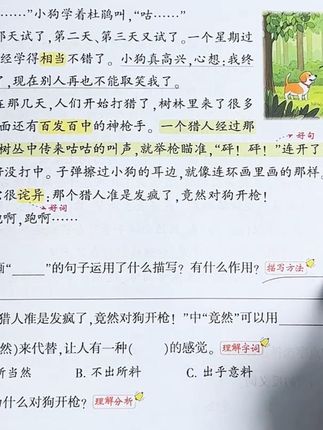 ……”小狗学着杜鹃叫，“咕……”
那天试了，第二天、第三天又试了。一个星期过
经学得相当不错了。小狗真高兴，心想：我终
了，现在别人再也不能取笑我了。
在那几天，人们开始打猎了，树林里来了很多
面还有百发百中的神枪手。一个猎人经过那
好句
树丛中传来咕咕的叫声，就举枪瞄准，“砰！砰！”连开了
没打中。子弹擦过小狗的耳边，就像连环画里画的那样。
它很诧异：那个猎人准是发疯了，竟然对狗开枪！
好词
跑啊，跑啊……
“______”的句子运用了什么描写？有什么作用？
描写方法
猎人准是发疯了，竟然对狗开枪！”中“竟然”可以用
然)来代替，让人有一种(　　)的感觉。
理解字词
所当然　B. 不出所料　C. 出乎意料
什么对狗开枪？
理解分析